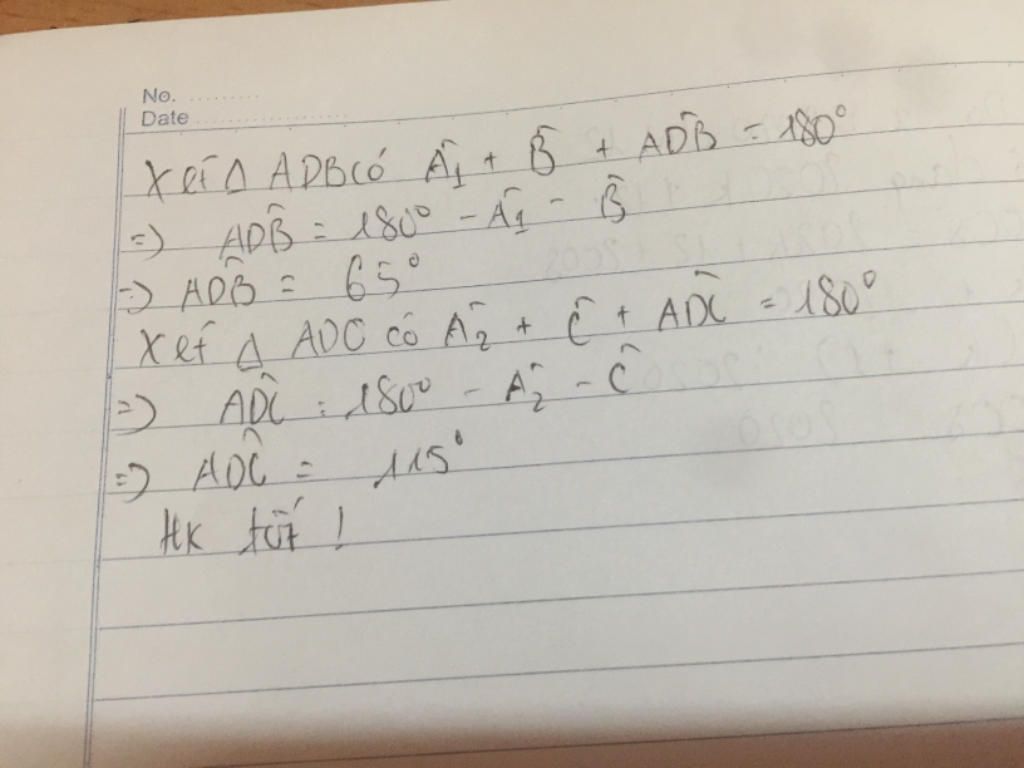 No. ..........
Date ......................
Xét Δ ADB có Â₁ + B̂ + AD̂B = 180°
=) AD̂B = 180° - Â₁ - B̂
=) AD̂B = 65°
Xét Δ ADC có Â₂ + Ĉ + AD̂C = 180°
=) AD̂C = 180° - Â₂ - Ĉ
=) AD̂C = 115°
Hk tốt !